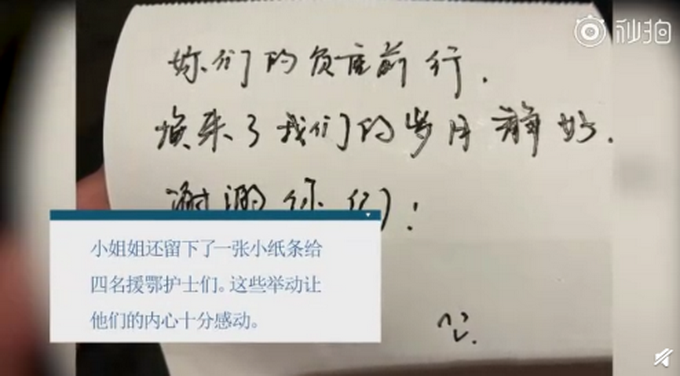 秒拍
妳们的负重前行.
换来了我们的岁月静好.
谢谢你们!
小姐姐还留下了一张小纸条给
四名援鄂护士们。这些举动让
他们的内心十分感动。